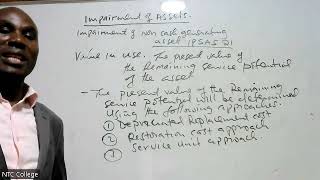 Impairment of Assets.
Impairment of non cash generating
asset IPSAS 21
Value in use. The present value of
the Remaining service potential
of the asset
- The present value of the Remaining
service potential will be determined
using the following approaches.
① Depreciated Replacement cost
② Restoration cost approach
③ Service unit approach.
NTC College